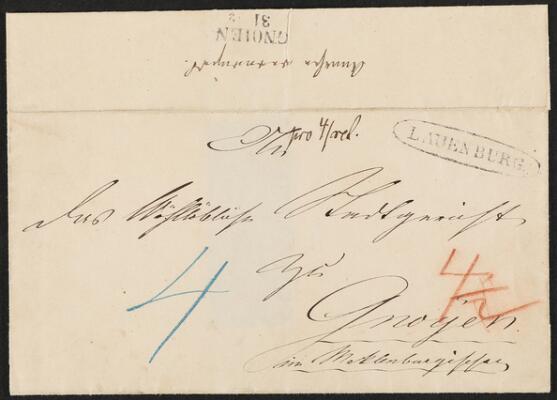 GNOIEN
31
An
LAUENBURG.
das Wohllöbliche Stadtgericht
zu
4
4½
Gnoyen
im Mecklenburgischen